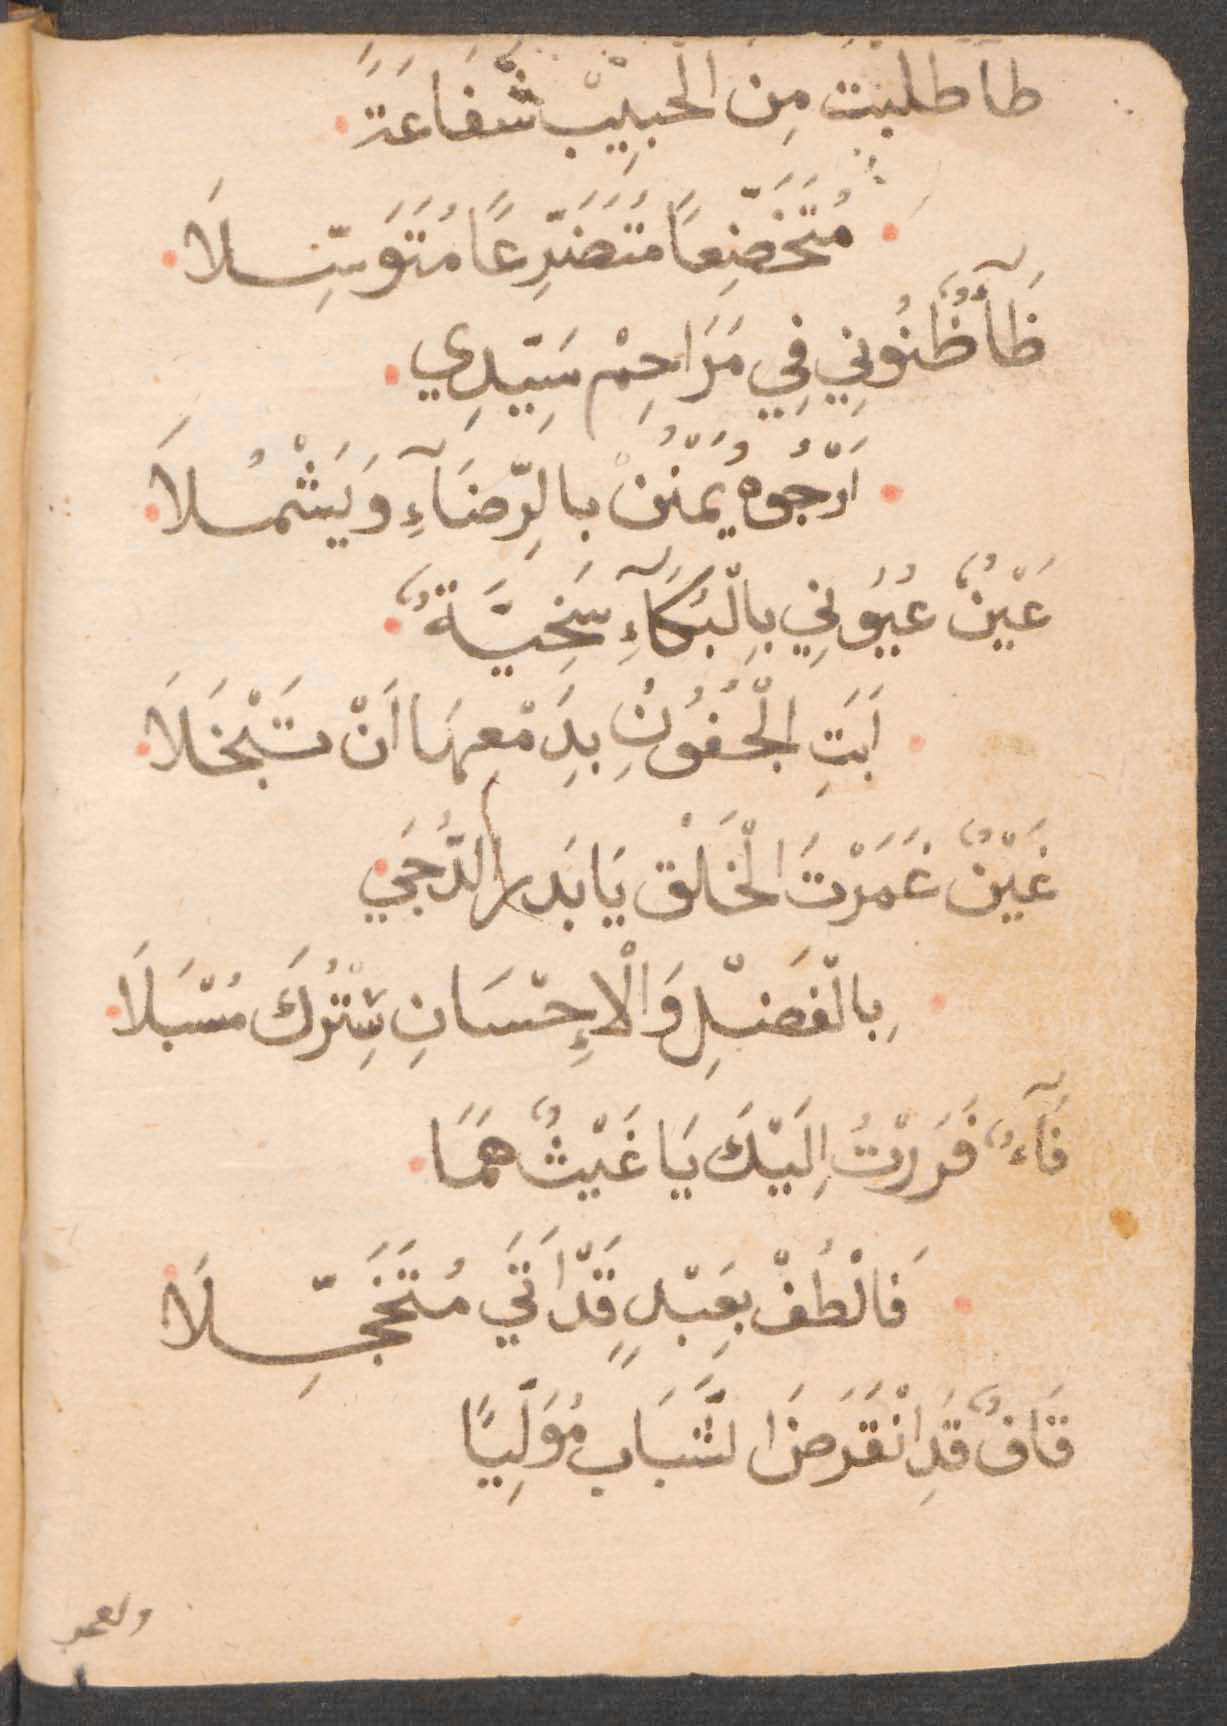 طا طلبت مِنَ الْحَبِيْبْ شَفَاعَةً
مُتَخَضِّعًا مُتَضَرِّعًا مُتَوَسِّلَا
ظَآءٌ ظُنُوُنِي فِي مَرَاحِمْ سَيِّدِي
اَرْجُوُهُ يَمْنُنْ بالِرِّضَآءِ وَيَشْمُلَا
عَيْنٌ عُيُوُنِي بِالْبُكَآءِ سَخِيَّةٌ
اَبَتِ الْجُفُوُنُ بِدَمْعِهَا اَنْ تَبْخَلَا
غَيْنٌ غَمَرْتَ الْخَلَقْ يَا بَدر الدُّجَي
بِالْفَضْلِ وَالْاِحْسَانِ سِتْرُكَ مُسْبَلَا
فَآءٌ فَرَرْتُ اِلَيْكَ يَا غَيْثٌ هَمَا
فَالْطُفْ بِعَبْدٍ قَدْ اَتَي مُتَخَجِّلَا
قَافٌ قَدِ انْقَرَضَ الشَّبَاب مُوَلِّيًا
والعمر